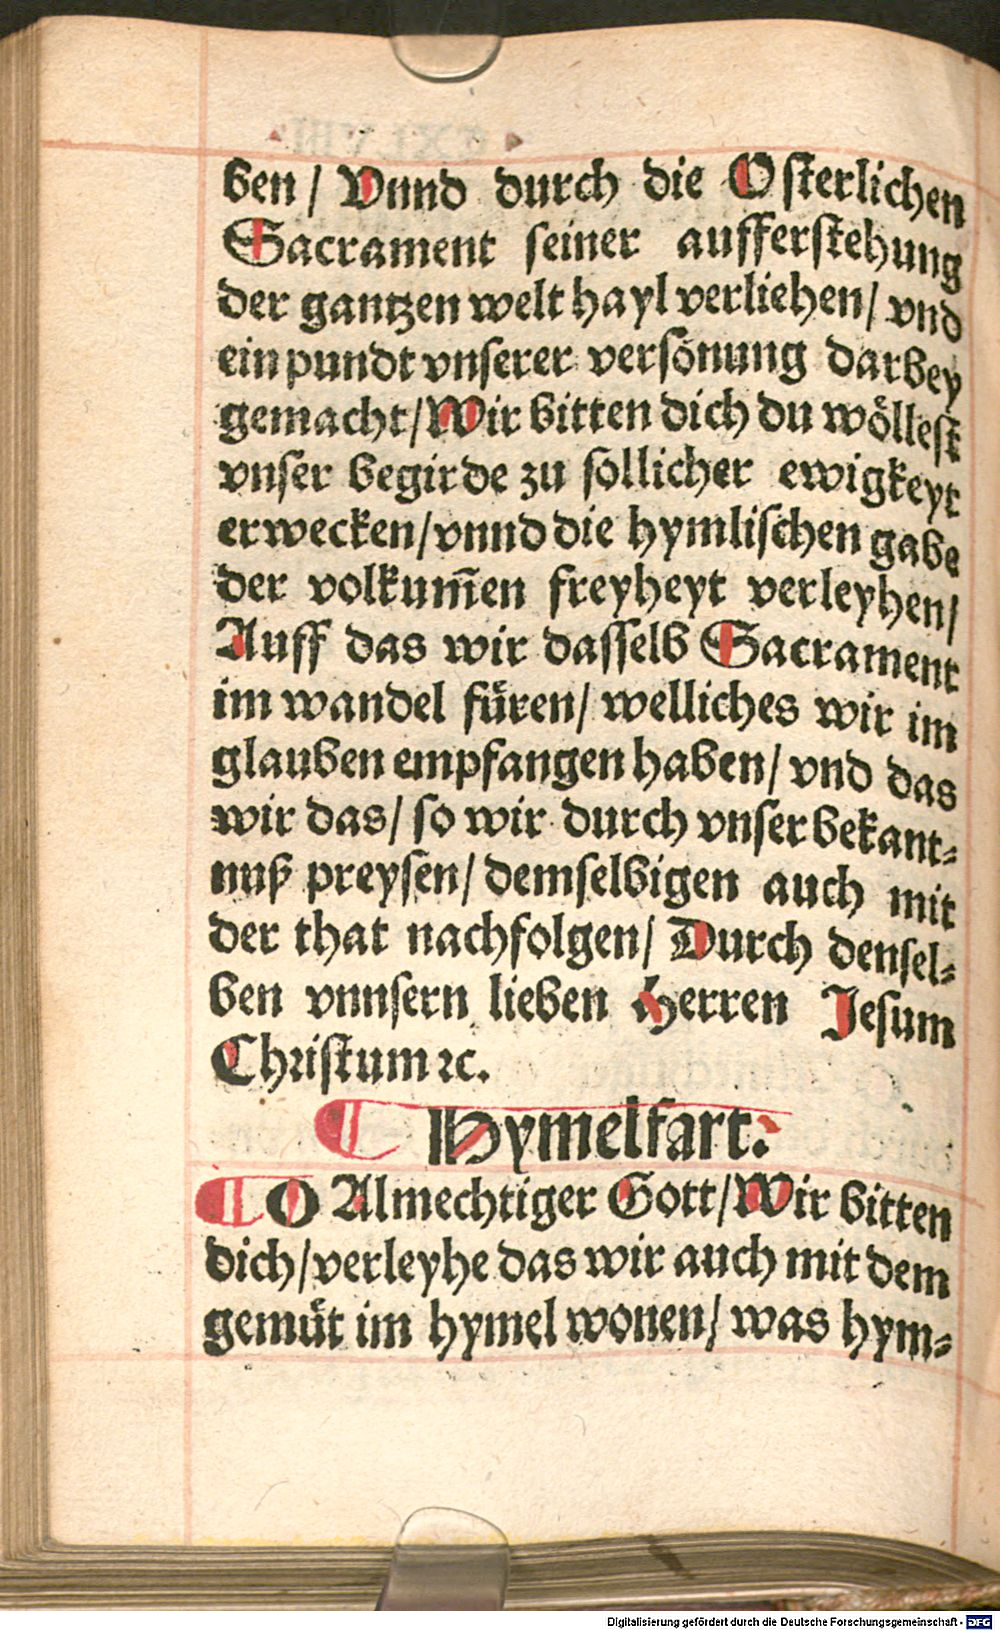 ben / Vnnd durch die Osterlichen
Sacrament seiner aufferstehung
der gantzen welt hayl verliehen / vnd
ein pundt vnserer versönung darbey
gemacht / Wir bitten dich du wöllest
vnser begirde zu sollicher ewigkeyt
erwecken / vnnd die hymlischen gabe
der volkum̄en freyheyt verleyhen /
Auff das wir dasselb Sacrament
im wandel füren / welliches wir im
glauben empfangen haben / vnd das
wir das / so wir durch vnser bekant⸗
nuß preysen / demselbigen auch mit
der that nachfolgen / Durch densel⸗
ben vnnsern lieben Herren Jesum
Christum ꝛc.
¶ Hymelfart.
¶ O Almechtiger Gott / Wir bitten
dich / verleyhe das wir auch mit dem
gemüt im hymel wonen / was hym⸗
Digitalisierung gefördert durch die Deutsche Forschungsgemeinschaft - DFG